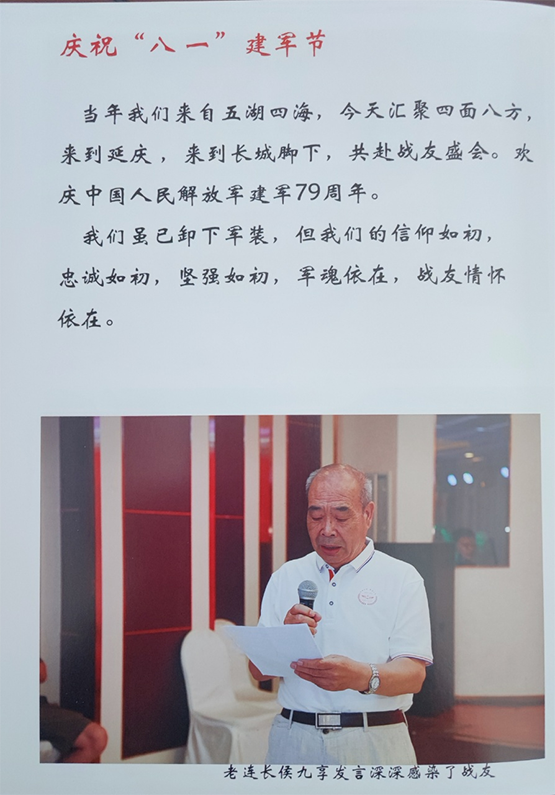 庆祝“八一”建军节
当年我们来自五湖四海，今天汇聚四面八方，
来到延庆，来到长城脚下，共赴战友盛会。欢
庆中国人民解放军建军79周年。
我们虽已卸下军装，但我们的信仰如初，
忠诚如初，坚强如初，军魂依在，战友情怀
依在。
老连长侯九享发言深深感染了战友